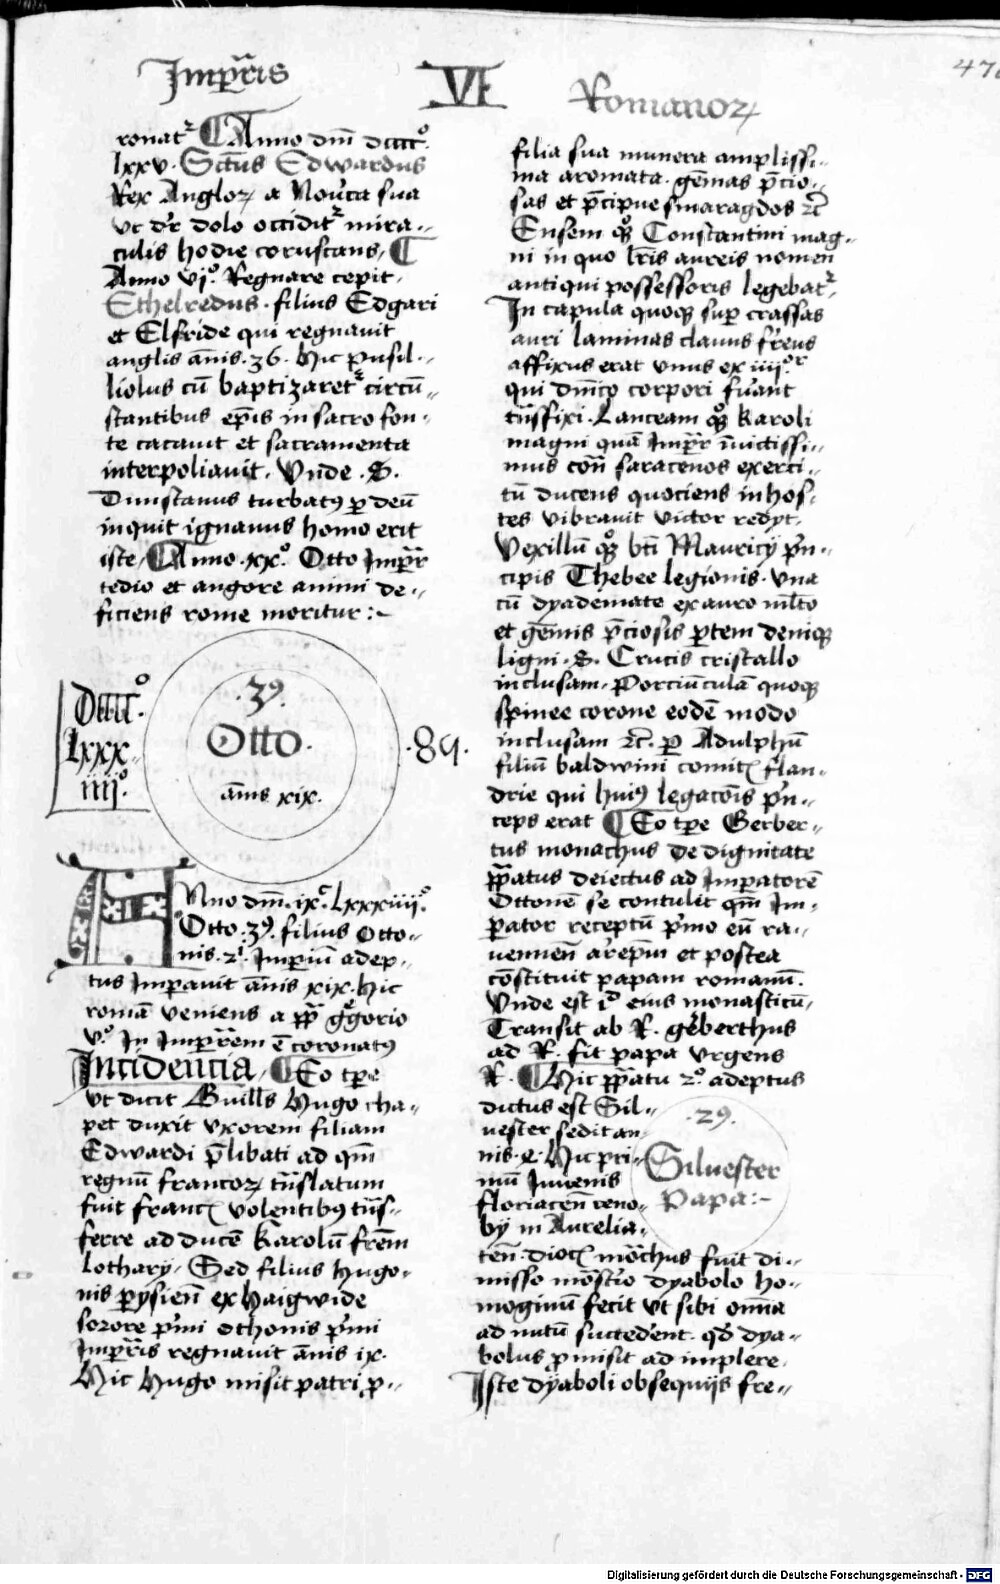 Imꝑr̃is VI Romanoꝝ 47
ronat᷑ ¶ Anno dñi dcccc°
lxxv. Sctũs Edwardus
Rex Angloꝝ a Nou̾ca sua
vt dr̃ dolo occidit᷑ mira-
culis hodie coruscans, ¶
Anno vj° Regnare cepit.
Ethelredus. filius Edgari
et Elfride qui regnauit
anglis ãnis. 36. Hic pusil-
liolus cũ baptizaret᷑ circũ-
stantibus ep̃is in sacro fon-
te cacauit et sacramenta
interpoliauit. Vnde. S.
Dunstanus turbatꝰ ꝑ deũ
inquit ignauus homo erit
iste, ¶ Anno. xx°. Otto Imꝑr̃
tedio et angore animi de-
ficiens rome moritur:-
Dcccc°.
lxxx
iiij°.
.3ꝰ.
Otto.
ãnis xix.
.89.
Anno dñi. ixͨ. Lxxxiiij°.
Otto. 3ꝰ. filius Otto-
nis. 2ⁱ. Imperiũ adep-
tus Imperauit ãnis xix. Hic
romã veniens a pp̃ gͦgorio
v° In Imꝑr̃em ẽ coronatꝰ
Incidencia, ¶ Eo tp̃e
vt dicit Guill̃s Hugo cha-
pet duxit vxorem filiam
Edwardi p̃libati ad qm̃
regnũ francoꝝ tñslatum
fuit franc̃ volentibꝰ tñs-
ferre ad ducẽ Karolũ fr̃em
Lotharij, Sed filius Hugo-
nis ꝑysieñ ex Haigwide
sorore pⁱmi othonis pⁱmi
Imꝑr̃is regnauit ãnis ix.
Hic Hugo misit patri, ꝓ-
filia sua munera amplissi-
ma aromata. gẽmas p̃cio-
sas et p̃cipue smaragdos ⁊c̃
Ensem qͦꝫ Constantini mag-
ni in quo lr̃is aureis nomen
antiqui possessoris legebat᷑.
In capula quoqꝫ suꝑ crassas
auri laminas clauus fer̃eus
affixus erat vnus ex iiijᵒʳ
qui dñico corpori fu̾ant
tñsfixi. Lanceam qͦꝫ Karoli
magni quã Imꝑr̃ ĩuictissi-
mus cont̃ saracenos exerci-
tũ ducens quociens in hos-
tes vibrauit victor redijt.
Vexillũ qͦꝫ bt̃i Mauricij pⁱn-
cipis Thebee legionis. Vna
cũ dyademate ex auro mlt̃o
et gẽmis p̃ciosis ꝑtem deniqꝫ
ligni. S. Crucis cristallo
inclusam. Porciũculã quoqꝫ
spinee corone eodẽ modo
inclusam ⁊c̃. ꝑ Adulphũ
filiũ baldwini comitꝭ flan-
drie qui huiꝰ legacõis pⁱn-
ceps erat ¶ Eo tp̃e Gerber-
tus monachus de dignitate
pp̃atus deiectus ad Imperatorẽ
Ottonẽ se contulit qm̃ Im-
ꝑator receptũ pⁱmo eũ ra-
uenneñ arep̃m et postea
cõstituit papam romanũ.
Vnde est iᵈ eius monasticũ,
Transit ab R. ge̾berthus
ad R. fit papa vrgens
R. ¶ Hic pp̃atu 2° adeptus
dictus est Sil-
uester sedit an-
nis. 4. Hic pri-
mũ Iuuenis
floriaceñ ceno-
bij in Aurelia-
teñ. dioc̃ mo̾chus fuit di-
misso mo̾st̾io dyabolo ho-
moginũ fecit vt sibi om̃ia
ad nutũ succede̾nt. qd̾ dya-
bolus ꝓmisit ad implere.
Iste dyaboli obsequijs fre-
.2ꝰ.
Siluester
Papa:-
Digitalisierung gefördert durch die Deutsche Forschungsgemeinschaft - DFG